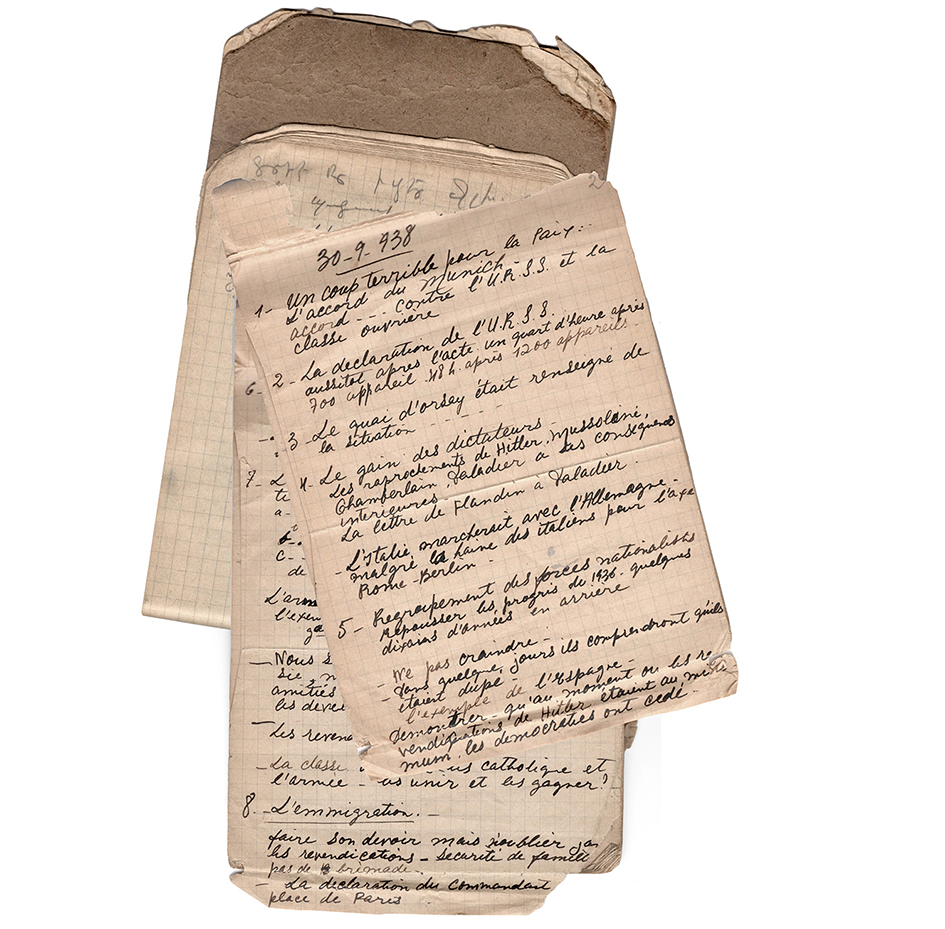 2
30-9-938
1- Un coup terrible pour la Paix:-
L'accord du Munich -
accord --- contre l'U.R.S.S. et la
classe ouvrière
2- La declaration de l'U.R.S.S.
aussitot après l'acte un quart d'heure après
700 appareil 48 h. après 1200 appareils.
3- Le quai d'orsey était renseigné de
la situation - - - - -
4- Le gain des dictateurs -
Les raprochements de Hitler, Mussoloni,
Chamberlain, Daladier a ses consequences
interieures.
La lettre de Flandin a Daladier.
- L'Italie marcherait avec l'Allemagne -
malgré la haine des italiens pour l'axe
Rome-Berlin -
5- Regroupement des forces nationalists
repousser les progris de 1936. quelques
dixains d'années en arrière
- Ne pas craindre -
- Dans quelque jours ils comprendront quils
étaient dupe -
l'exemple de l'Espagne -
Demontrer - qu'au moment ou les re
vendications de Hitler étaient au maxi-
mum, les democraties ont cedé.
6-
7- L
a-
b-
c-
de
L'arm
l'exem
ga
- Nous s
sie, n
amitiés
les dever
- Les revena
- La classe us catholique et
l'armée - les unir et les gagner!
8. - L'emmigration. -
faire son devoir mais noublier
les revendications - securité de famille
pas de brimade -
- La declaration du Commandant
place de Paris